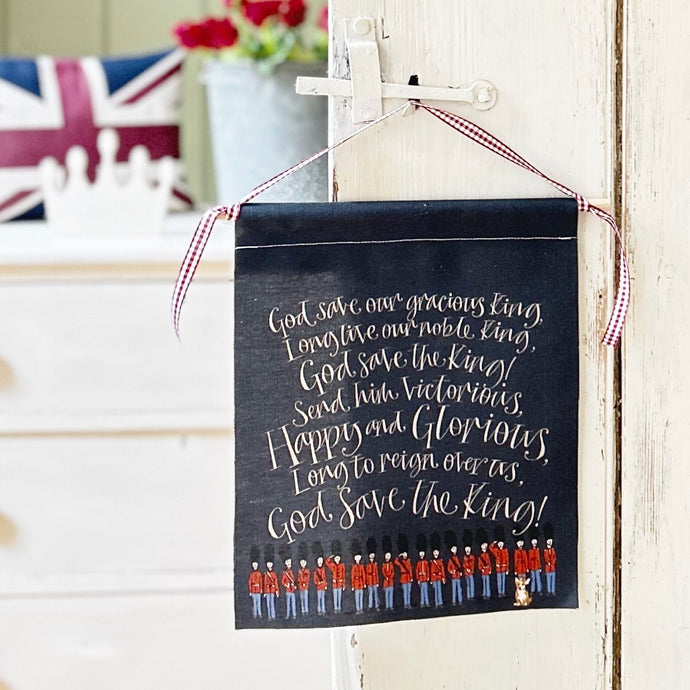 God save our gracious King,
Long live our noble King,
God save the King!
Send him Victorious,
Happy and Glorious,
Long to reign over us,
God Save the King!